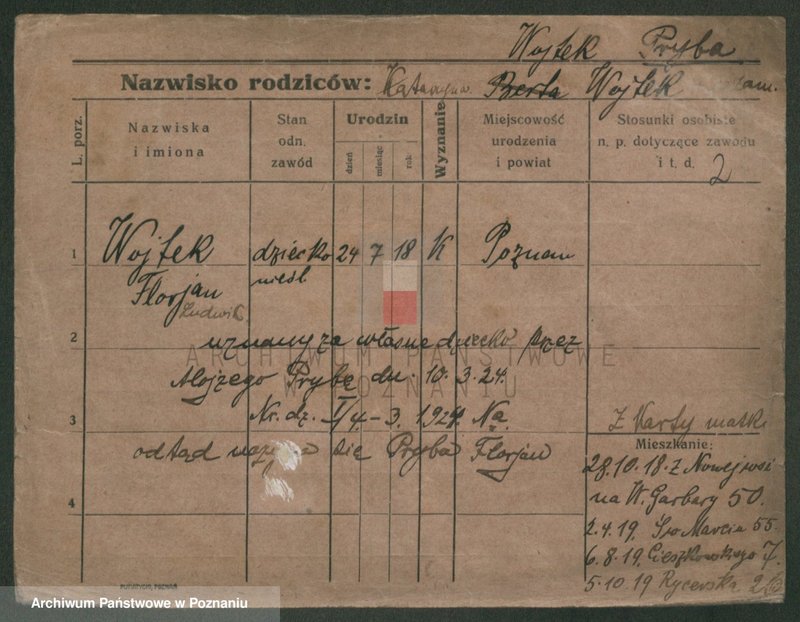 Wojtek Pryba
Nazwisko rodziców: Katarzyna Berta Wojtek
L. porz.
Nazwiska
i imiona
Stan
odn.
zawód
Urodzin
dzień
miesiąc
rok
Wyznanie
Miejscowość
urodzenia
i powiat
Stosunki osobiste
n. p. dotyczące zawodu
i t. d. 2
1 Wojtek dziecko 24 7 18 K Poznan
nieśl
Florjan
Ludwik
2 uznany za własne dziecko przez
ARCHIWUM PAŃSTWOWE
W POZNANIU
Alojzego Prybę dn. 10.3.24.
3 Nr. dz. I/4-3. 1924. Na
Z Karty matki
Mieszkanie:
odtąd się Pryba Florjan
28.10.18. z
na W. Garbary 50.
4
2.4.19. Św Marcin 55.
6.8.19. Cieszkowskiego 7.
5.10.19 Rycerska
PUTIATYCKI, POZNAŃ
Archiwum Państwowe w Poznaniu